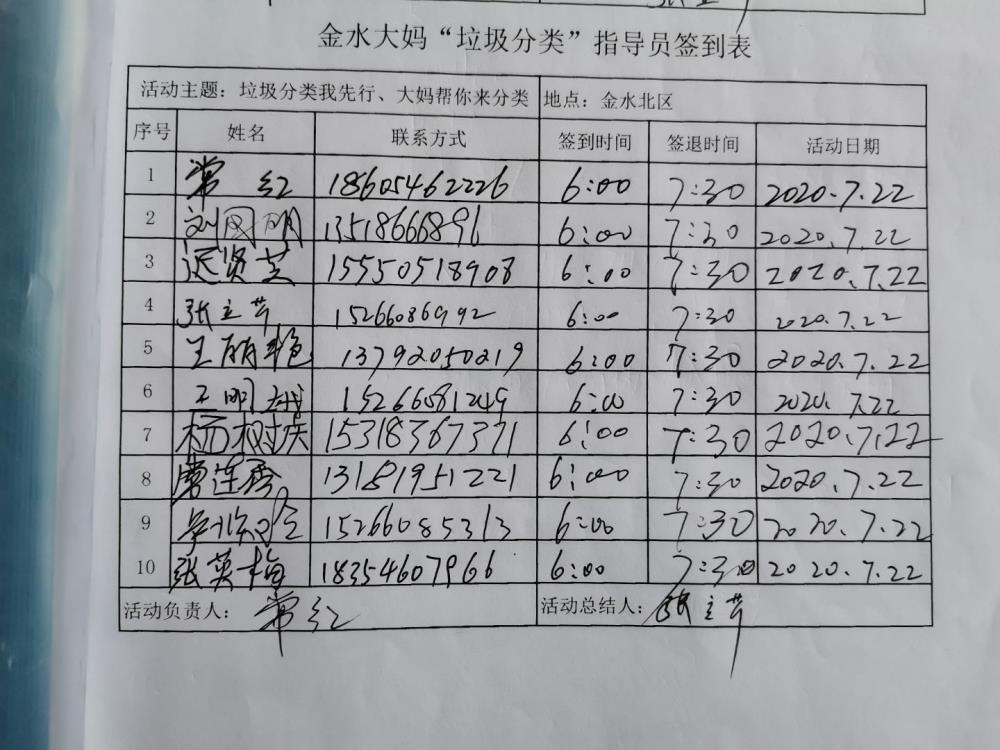 金水大妈“垃圾分类”指导员签到表
活动主题：垃圾分类我先行、大妈帮你来分类 地点：金水北区
序号 姓名 联系方式 签到时间 签退时间 活动日期
1 常红 18605462226 6:00 7:30 2020.7.22
2 刘国明 13518666896 6:00 7:30 2020.7.22
3 远贤芝 15550518908 6:00 7:30 2020.7.22
4 张立芹 15266086992 6:00 7:30 2020.7.22
5 王丽艳 13792050219 6:00 7:30 2020.7.22
6 王明娥 15266081249 6:00 7:30 2020.7.22
7 杨树庆 15318367371 6:00 7:30 2020.7.22
8 唐连香 13181951221 6:00 7:30 2020.7.22
9 15266085313 6:00 7:30 2020.7.22
10 张英梅 18354607966 6:00 7:30 2020.7.22
活动负责人：常红 活动总结人：张立芹